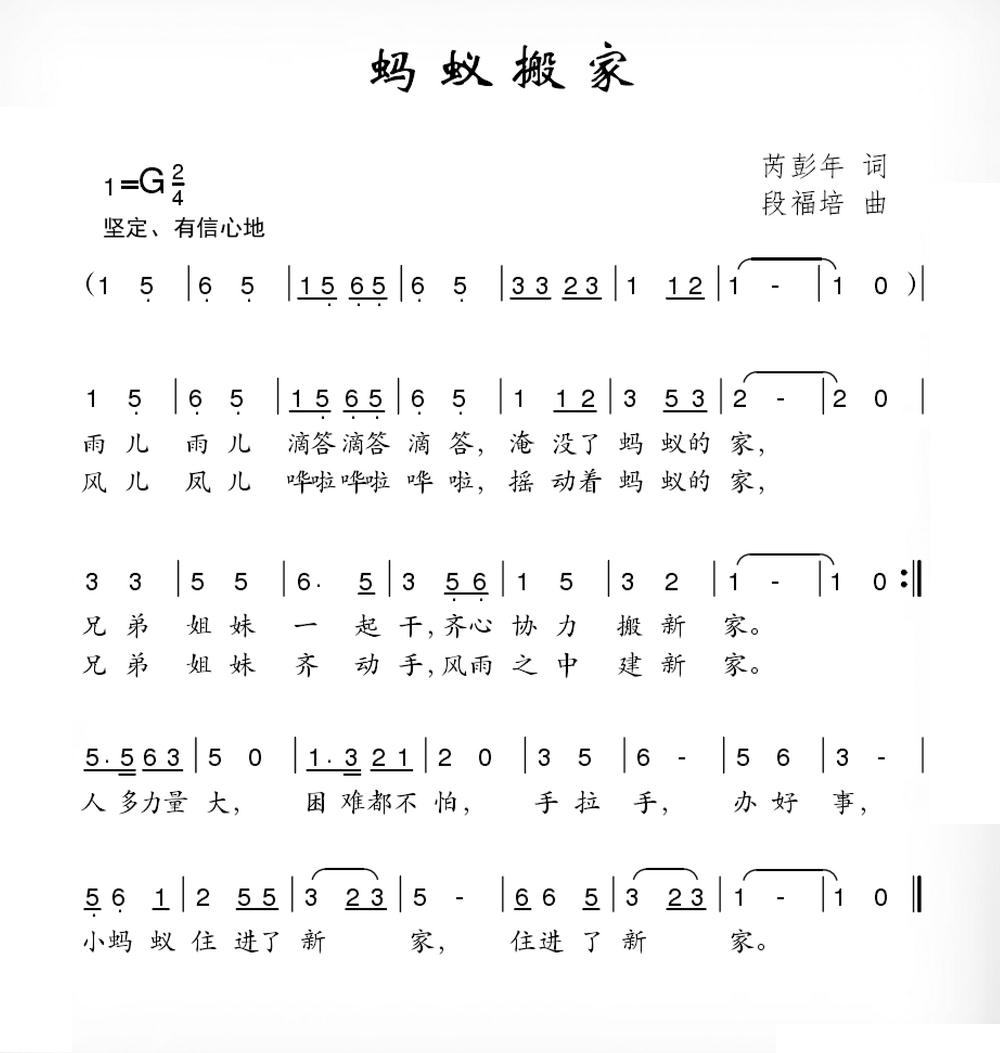 蚂蚁搬家
芮彭年 词
1=G 2/4
段福培 曲
坚定、有信心地
(1 5̣ | 6̣ 5̣ | 1 5̣ 6̣ 5̣ | 6̣ 5̣ | 3 3 2 3 | 1 1 2 | 1 - | 1 0 )|
1 5̣ | 6̣ 5̣ | 1 5̣ 6̣ 5̣ | 6̣ 5̣ | 1 1 2 | 3 5 3 | 2 - | 2 0 |
雨儿 雨儿 滴答滴答 滴答, 淹没了 蚂蚁的 家,
风儿 凤儿 哗啦哗啦 哗啦, 摇动着 蚂蚁的 家,
3 3 | 5 5 | 6· 5 | 3 5̣ 6̣ | 1 5 | 3 2 | 1 - | 1 0 :‖
兄弟 姐妹 一起干,齐心 协力 搬新 家。
兄弟 姐妹 齐动手,风雨 之中 建新 家。
5· 5 6 3 | 5 0 | 1· 3 2 1 | 2 0 | 3 5 | 6 - | 5 6 | 3 - |
人多力量 大, 困难都不 怕, 手拉 手, 办好 事,
5̣ 6̣ 1 | 2 5 5 | 3 2 3 | 5 - | 6 6 5 | 3 2 3 | 1 - | 1 0 ‖
小蚂蚁 住进了 新 家, 住进了 新 家。